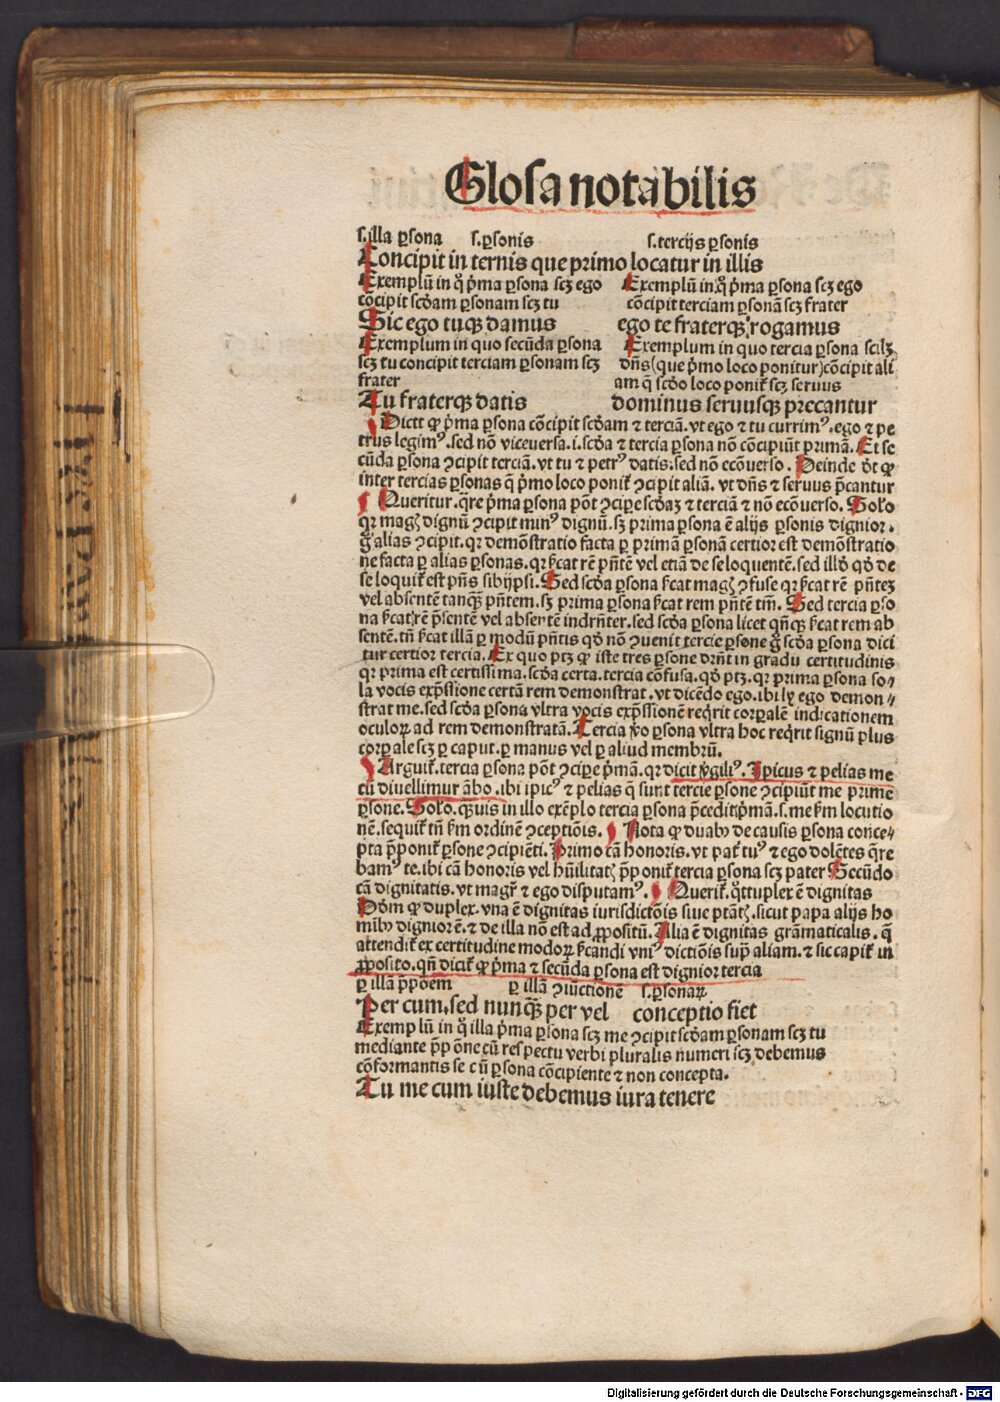 Glosa notabilis
s.illa ꝑsona s.ꝑsonis s.tercijs ꝑsonis
Concipit in ternis que primo locatur in illis
Exemplū in q̊ p̄ma ꝑsona scꝫ ego Exemplū in q̊ p̄ma ꝑsona scꝫ ego
cōcipit scḋam ꝑsonam scꝫ tu cōcipit terciam ꝑsonā scꝫ frater
Sic ego tuqꝫ damus ego te fraterqꝫ rogamus
Exemplum in quo secūda ꝑsona Exemplum in quo tercia ꝑsona scilꝫ
scꝫ tu concipit terciam ꝑsonam scꝫ dn̄s (que p̄mo loco ponitur) cōcipit ali
frater am q̄ scḋo loco poniť scꝫ seruus
Tu fraterqꝫ datis dominus seruusqꝫ precantur
Dicit ꝙ p̄ma ꝑsona cōcipit scḋam ⁊ terciā. vt ego ⁊ tu currimꝰ. ego ⁊ pe
trus legimꝰ. sed nō viceuersa. i. scḋa ⁊ tercia ꝑsona nō cōcipiūt primā. Et se
cūda ꝑsona ꝯcipit terciā. vt tu ⁊ petrꝰ datis. sed nō ecōuerso. Deinde ḋt ꝙ
inter tercias ꝑsonas q̄ p̄mo loco poniť ꝯcipit aliā. vt dn̄s ⁊ seruus p̄cantur
Queritur. q̄re p̄ma ꝑsona pōt ꝯcipe scḋaꝫ ⁊ terciā ⁊ nō ecōuerso. Solo
qꝛ magꝭ dignū ꝯcipit minꝰ dignū. sꝫ prima ꝑsona ē alijs ꝑsonis dignior.
g̊ alias ꝯcipit. qꝛ demōstratio facta ꝑ primā ꝑsonā certior est demōstratio
ne facta ꝑ alias ꝑsonas. qꝛ sͥcat rē p̄ntē vel etiā de se loquentē. sed illḋ qḋ de
se loquiť est p̄ns sibijpsi. Sed scḋa ꝑsona sͥcat magꝭ ꝯfuse qꝛ sͥcat rē p̄nteꝫ
vel absentē tanqꝫ p̄ntem. sꝫ prima ꝑsona sͥcat rem p̄ntē tm̄. Sed tercia ꝑso
na sͥcat rē p̄sentē vel absentē indrn̄ter. sed scḋa ꝑsona licet qn̄qꝫ sͥcat rem ab
sentē. tn̄ sͥcat illā ꝑ modū p̄ntis qḋ nō ꝯuenit tercie ꝑsone g̊ scḋa ꝑsona dici
tur certior tercia. Ex quo ptꝫ ꝙ iste tres ꝑsone drn̄t in gradu certitudinis
qꝛ prima est certissima. scḋa certa. tercia cōfusa. qḋ ptꝫ. qꝛ prima ꝑsona so⸗
la vocis exp̄ssione certā rem demonstrat. vt dicēdo ego. ibi ly ego demon⸗
strat me. sed scḋa ꝑsona vltra vocis exp̄ssionē reqͥrit corꝑalē indicationem
oculoꝝ ad rem demonstratā. Tercia v̊o ꝑsona vltra hoc reqͥrit signū plus
corꝑale scꝫ ꝑ caput. ꝑ manus vel ꝑ aliud membrū.
Arguiť. tercia ꝑsona pōt ꝯcipe p̄mā. qꝛ dicit v̓giliꝰ. Ipicus ⁊ pelias me
cū diuellimur ābo. ibi ipicꝰ ⁊ pelias q̄ sunt tercie ꝑsone ꝯcipiūt me prime
ꝑsone. Solo. qꝫuis in illo exēplo tercia ꝑsona p̄cedit p̄mā. s. me sͫm locutio
nē. sequiť tn̄ sͫm ordinē ꝯceptiōis. Nota ꝙ duabꝰ de causis ꝑsona conce⸗
pta p̄poniť ꝑsone ꝯcipiēti. Primo cā honoris. vt pať tuꝰ ⁊ ego dolētes q̄re
bamꝰ te. ibi cā honoris vel hūilitatꝭ p̄poniť tercia ꝑsona scꝫ pater Secūdo
cā dignitatis. vt magr̄ ⁊ ego disputamꝰ. Queriť. q̊ttuplex ē dignitas
Dōm ꝙ duplex. vna ē dignitas iurisdictōis siue ptātꝭ. sicut papa alijs ho
mibꝰ dignior ē. ⁊ de illa nō est ad ꝓpositū. Alia ē dignitas grāmaticalis. q̄
attendiť ex certitudine modoꝝ sͥcandi vniꝰ dictiōis sup̄ aliam. ⁊ sic capiť in
ꝓposito. qn̄ diciť ꝙ p̄ma ⁊ secūda ꝑsona est dignior tercia
ꝑ illā p̄pōem ꝑ illā ꝯiūctionē s. ꝑsonaꝝ
Per cum, sed nunqꝫ per vel conceptio fiet
Exemplū in q̊ illa p̄ma ꝑsona scꝫ me ꝯcipit scḋam ꝑsonam scꝫ tu
mediante p̄pōne cū respectu verbi pluralis numeri scꝫ debemus
cōformantis se cū ꝑsona cōcipiente ⁊ non concepta.
Tu me cum iuste debemus iura tenere
Digitalisierung gefördert durch die Deutsche Forschungsgemeinschaft - DFG